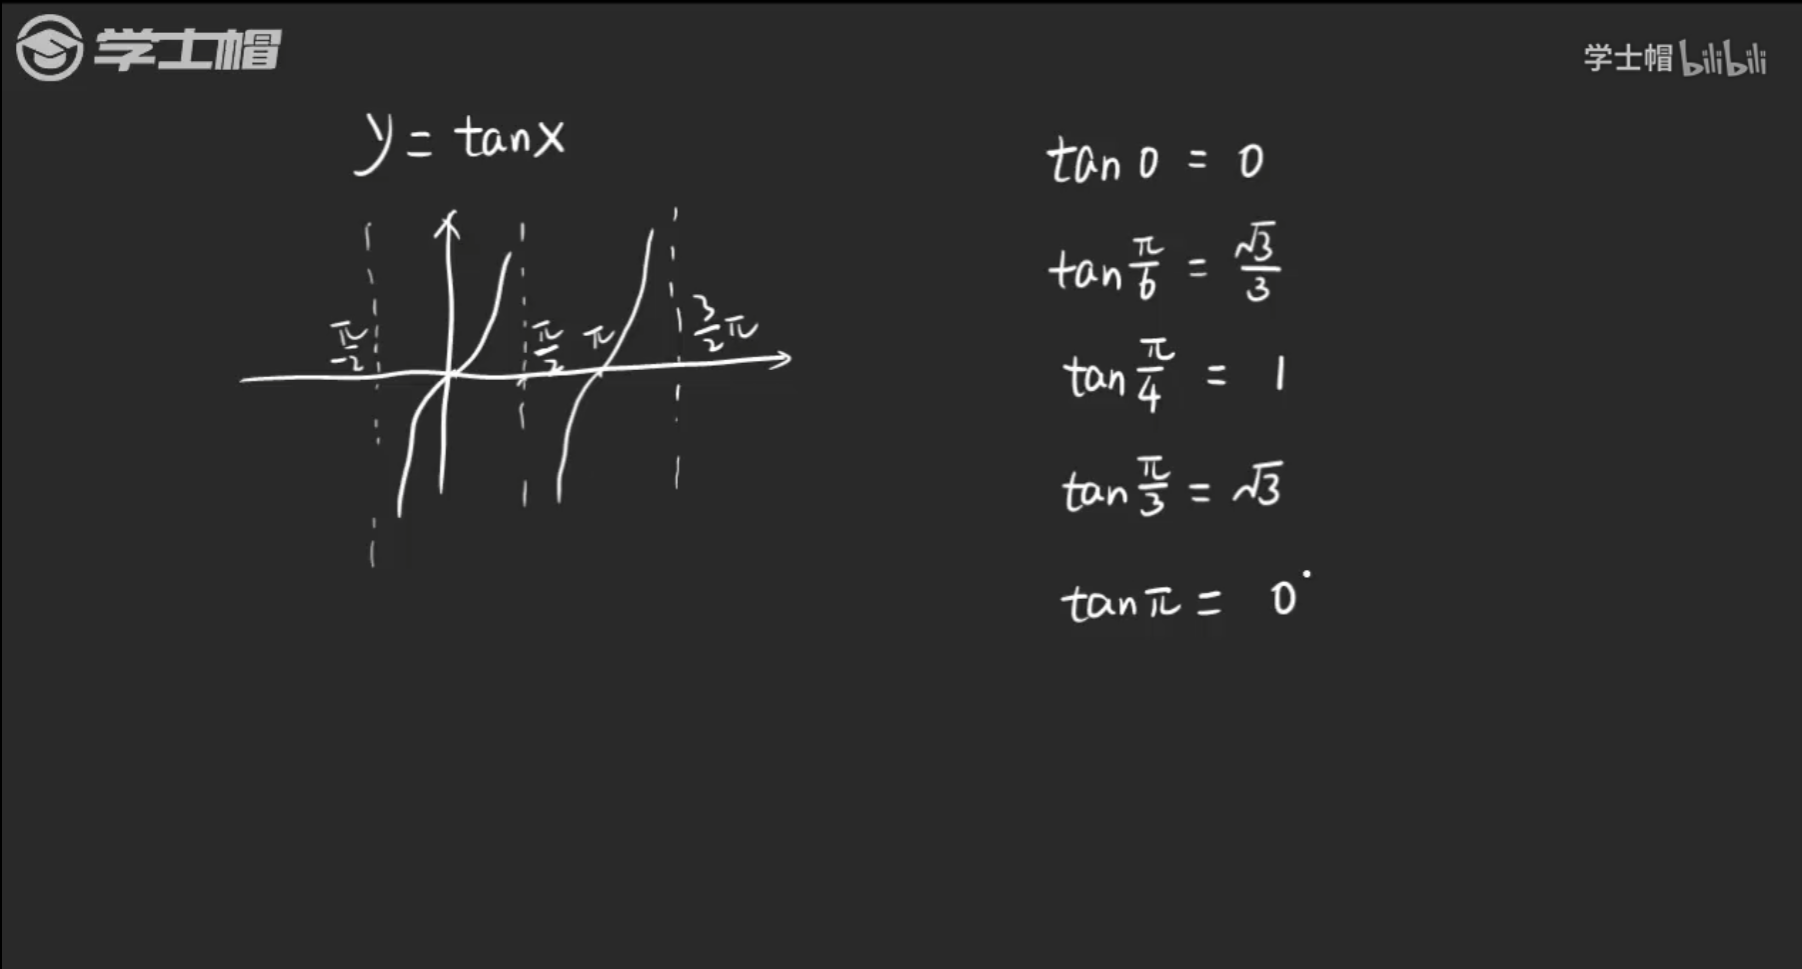 学士帽
学士帽 bilibili
y = tanx
π/-2
π/2
π
3/2 π
tan 0 = 0
tan π/6 = √3/3
tan π/4 = 1
tan π/3 = √3
tan π = 0